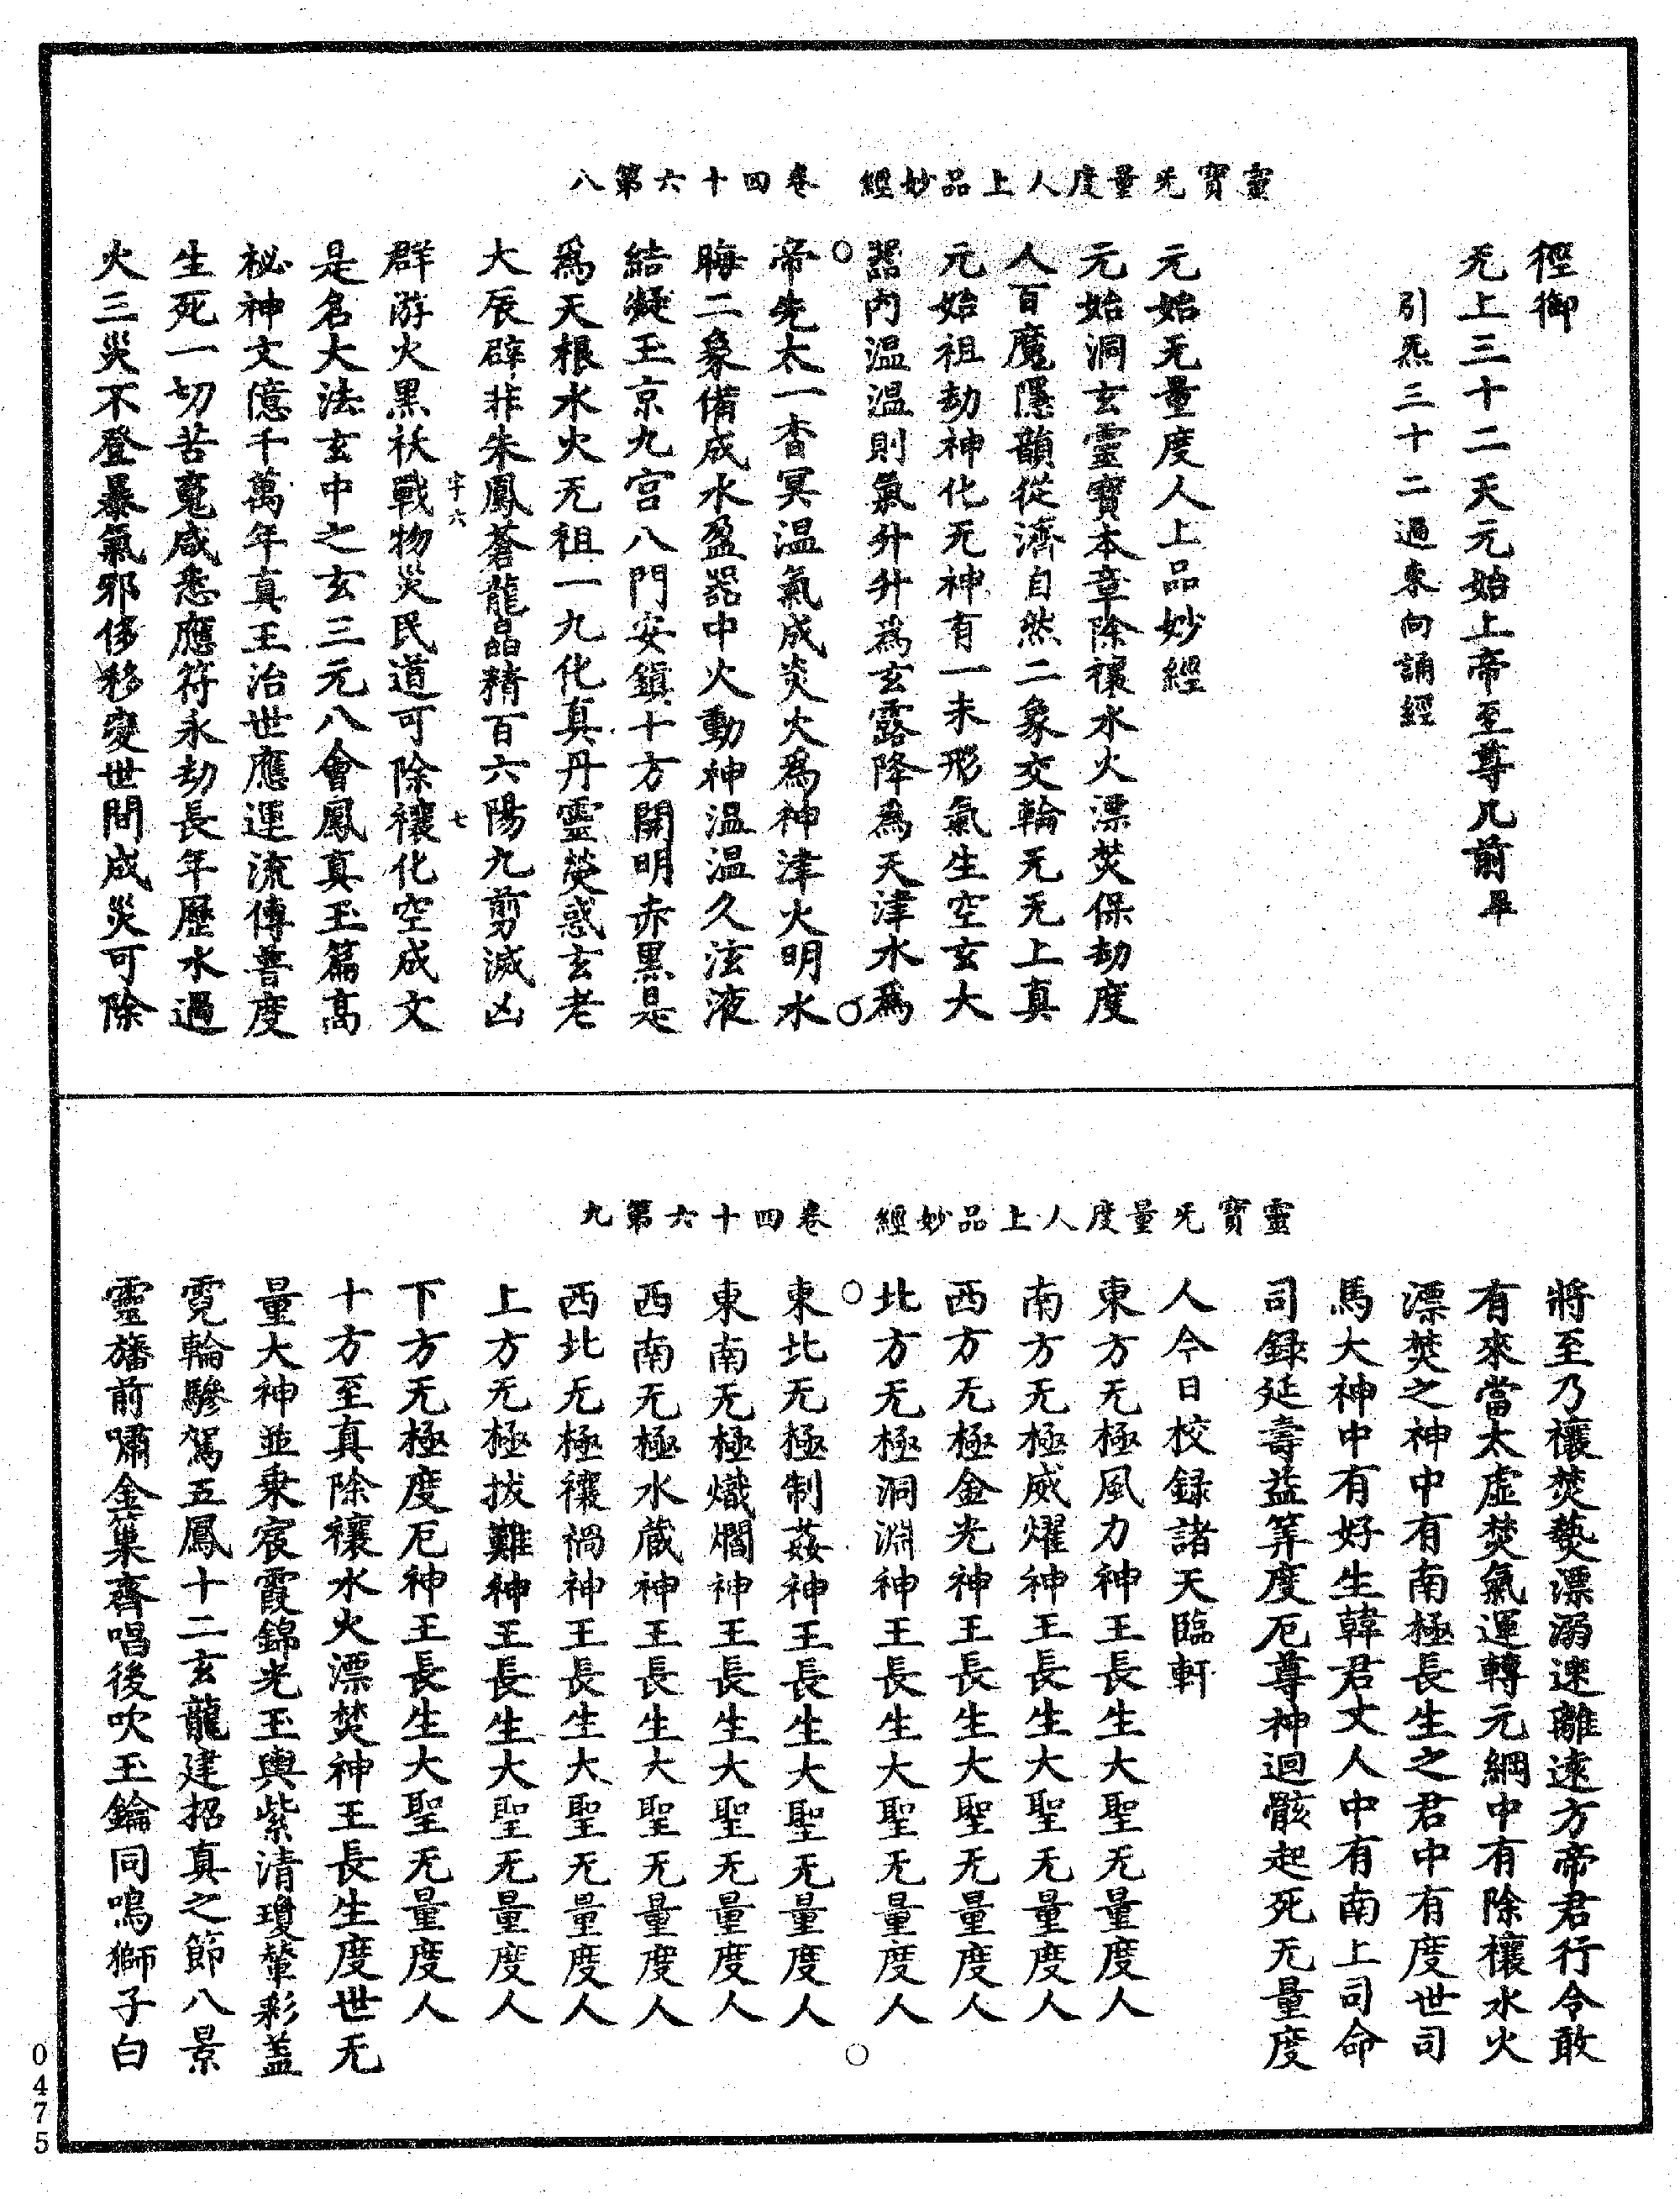 靈寶旡量度人上品妙經 卷四十六第八
徑御
无上三十二天元始上帝至尊几前畢
引炁三十二過東向誦經
元始无量度人上品妙經
元始洞玄靈寶本章除禳水火漂焚保劫度
人百魔隱韻從濟自然二象交輪无无上真
元始祖劫神化无神有一未形氣生空玄大
器內溫溫則氣升升為玄露降為天津水爲
帝先太一杳冥溫氣成炎火爲神津火明水
晦二象備成水盈器中火動神溫溫久泫液
結凝玉京九宮八門安鎮十方開明赤黑是
爲天根水火无祖一九化真丹靈熒惑玄老
大辰辟非朱鳳蒼龍晶精百六陽九剪滅凶
群游火黑祅戰物災民道可除禳化空成文
字六 七
是名大法玄中之玄三元八會鳳真玉篇高
祕神文億千萬年真王治世應運流傳普度
生死一切苦䰟咸悉應符永劫長年歷水過
火三災不登暴氣邪侈移變世間成災可除
靈寶旡量度人上品妙經 卷四十六第九
將至乃禳焚爇漂溺速離遠方帝君行令敢
有來當太虛焚氣運轉元綱中有除禳水火
漂焚之神中有南極長生之君中有度世司
馬大神中有好生韓君丈人中有南上司命
司録延壽益筭度厄尊神迴骸起死无量度
人今日校録諸天臨軒
東方无極風力神王長生大聖无量度人
南方无極威燿神王長生大聖无量度人
西方无極金光神王長生大聖无量度人
北方无極洞淵神王長生大聖无量度人
東北无極制姦神王長生大聖无量度人
東南无極熾爓神王長生大聖无量度人
西南无極水蔵神王長生大聖无量度人
西北无極禳禍神王長生大聖无量度人
上方无極拔難神王長生大聖无量度人
下方无極度厄神王長生大聖无量度人
十方至真除禳水火漂焚神王長生度世无
量大神並乗宸霞錦光玉輿紫清瓊輦彩盖
霓輪驂駕五鳳十二玄龍建招真之節八景
靈旛前嘯金菓齊唱後吹玉鑰同鳴獅子白
0475